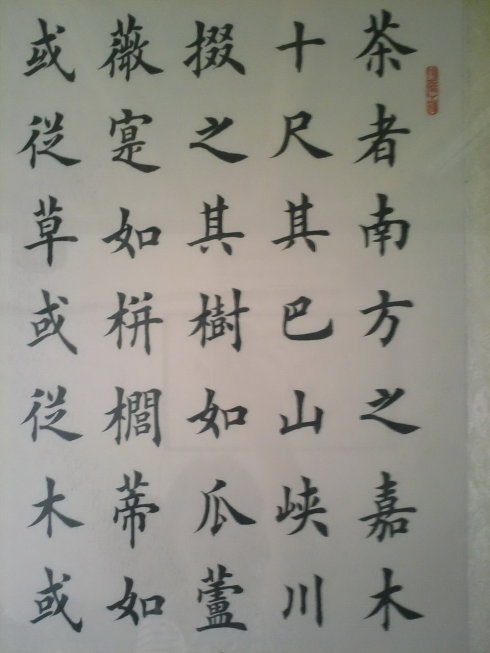 茶者南方之嘉木
十尺其巴山峽川
掇之其樹如瓜蘆
薇寔如栟櫚蒂如
或從草或從木或